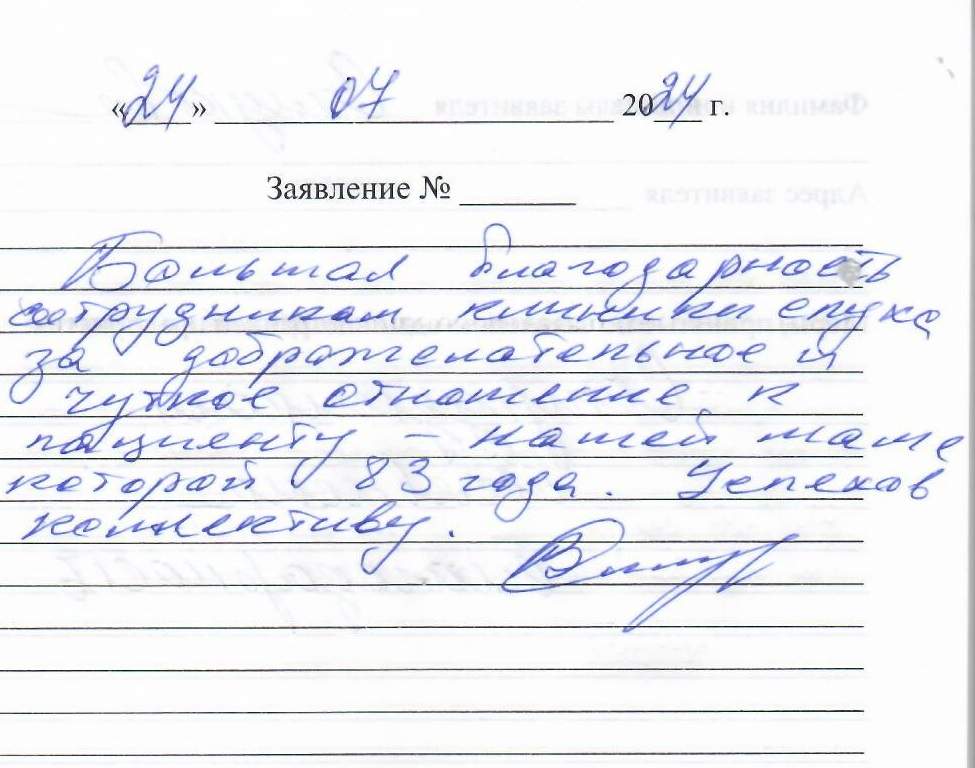 «24» 07 2024 г.
Заявление №
Большая благодарность
сотрудникам клиники слуха
за доброжелательное и
чуткое отношение к
пациенту – нашей маме
которой 83 года. Успехов
коллективу.